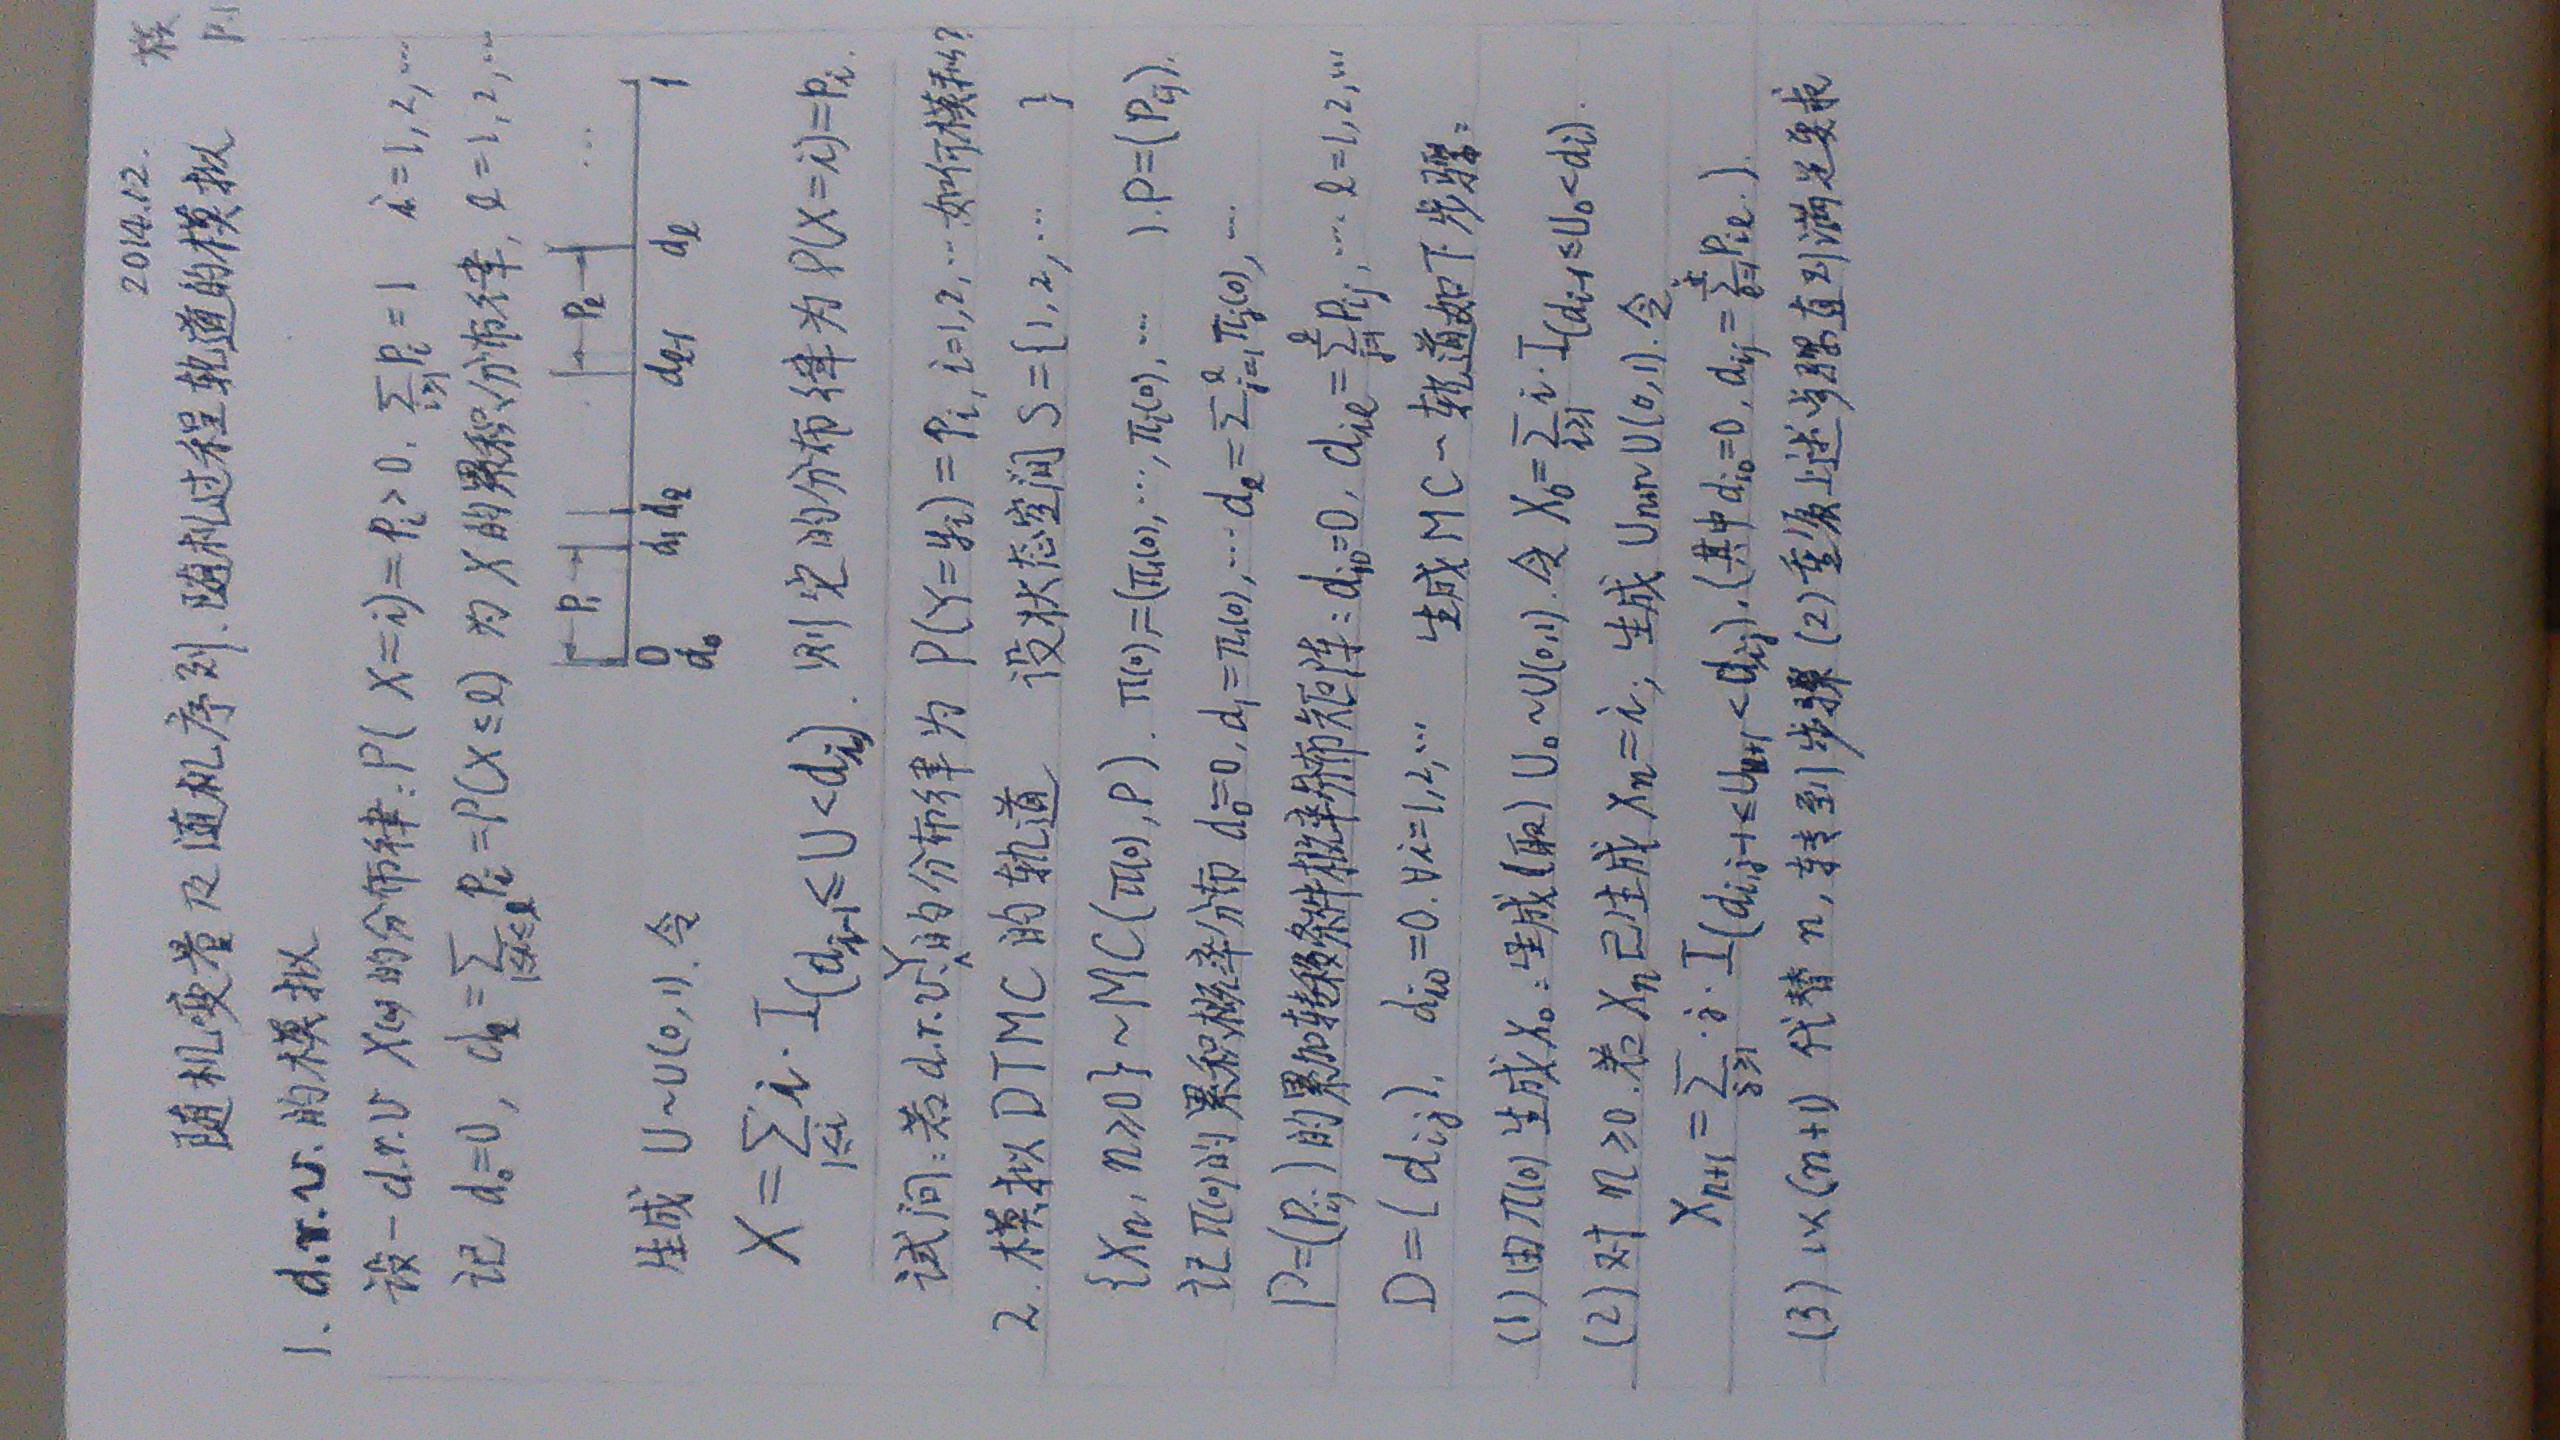 2014.12.
随机变量及随机序列、随机过程轨道的模拟
1. d.r.v. 的模拟
设一 d.r.v X 的分布律: P(X=i)=Pi>0, ∑_{i≥1} Pi=1 i=1,2,…
记 d₀=0, d_ℓ=∑_{1≤i≤ℓ} Pi=P(X≤ℓ) 为 X 的累积分布律, ℓ=1,2,…
P₁ P_ℓ …
0 d₁ d₂ d_{ℓ-1} d_ℓ 1
d₀
生成 U~U(0,1). 令
X=∑_{1≤i} i·I(d_{i-1}≤U<d_i). 则它的分布律为 P(X=i)=Pi.
试问: 若 d.r.v. Y 的分布律为 P(Y=y_i)=P_i, i=1,2,…如何模拟?
2. 模拟 DTMC 的轨道 设状态空间 S={1,2,… }
{X_n, n≥0}~MC(π(0),P). π(0)=(π₁(0),…,π_i(0),… ). P=(P_ij).
记 π(0) 的累积概率分布 d₀=0, d₁=π₁(0),… d_ℓ=∑_{j=1}^ℓ π_j(0),…
P=(P_ij) 的累加转移条件概率分布矩阵: d_{i0}=0, d_{iℓ}=∑_{j=1}^ℓ P_ij,… ℓ=1,2,…
D=(d_ij), d_{i0}=0. ∀i=1,2,… 生成 MC 一轨道如下步骤:
(1) 由 π(0) 生成 X₀: 生成(取) U₀~U(0,1). 令 X₀=∑_{i≥1} i·I(d_{i-1}≤U₀<d_i).
(2) 对 n≥0. 若 X_n 已生成 X_n=i; 生成 U_{n+1}~U(0,1). 令
X_{n+1}=∑_{j≥1} j·I(d_{i,j-1}≤U_{n+1}<d_ij). (其中 d_{i0}=0, d_ij=∑_{ℓ=1}^j P_iℓ.)
(3) 以 (n+1) 代替 n, 转到步骤 (2) 重复上述步骤直到满足要求